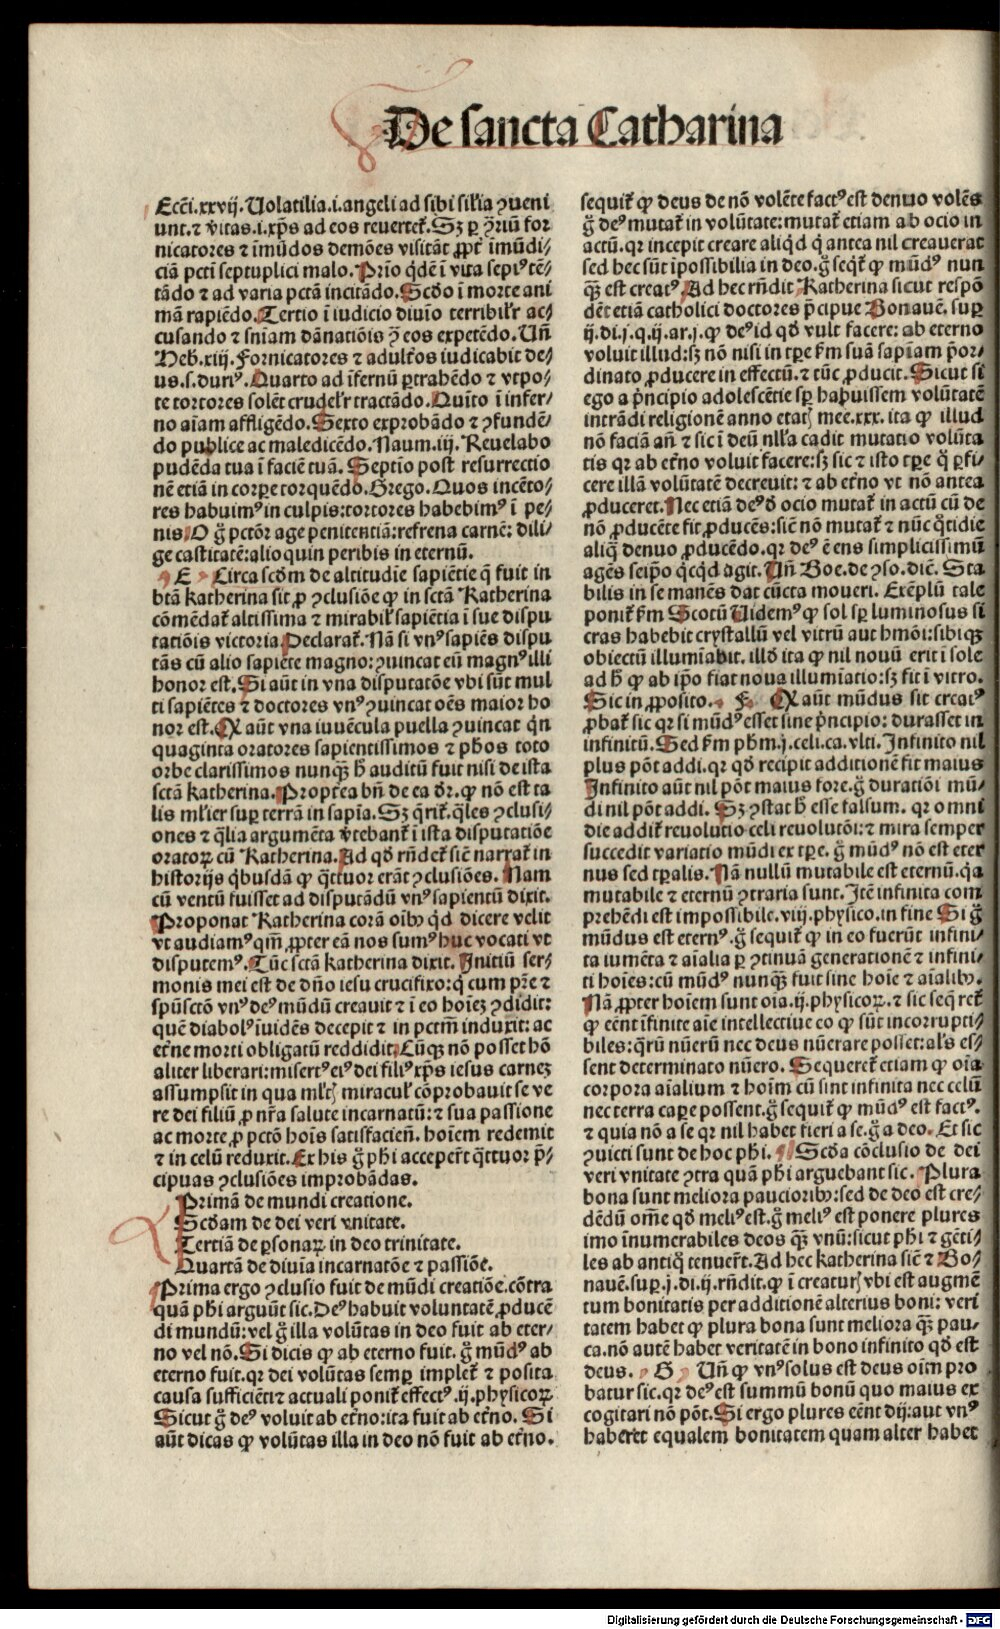 De sancta Catharina
Eccī.xxvij. Uolatilia.i.angeli ad sibi sil'ia ꝯueni
unt.⁊ v̄itas.i.xp̄s ad eos reuertet̄. Sꝫ ꝑ ꝯ̄riū for
nicatores ⁊ īmūdos demōes visitāt ꝓpt̄ īmūdi⸗
ciā pctī septuplici malo. Prīo qͥdē ī vita sepiꝰ tē⸗
tādo ⁊ ad varia pctā incitādo. Scd̄o ī morte ani
mā rapiēdo. Tertio ī iudicio diuīo terribil'r ac⸗
cusando ⁊ sn̄iam dānatiōis ꝯ̄ eos expetēdo. Un̄
Heb.xiij. Fornicatores ⁊ adult̄os iudicabit de⸗
us.s.duriꝰ. Quarto ad īfernū ꝑtrahēdo ⁊ vtpo⸗
te tortores solēt crudel'r tractādo. Quīto ī infer⸗
no aīam affligēdo. Sexto exprobādo ⁊ ꝯfundē⸗
do publice ac maledicēdo. Naum.iij. Reuelabo
pudēda tua ī faciē tuā. Septīo post resurrectio
nē etiā in corꝑe torquēdo. Grego. Quos incēto⸗
res habuimꝰ in culpis: tortores habebimꝰ ī pe⸗
nis. O ḡ pctōr age penitentiā: refrena carnē: dili⸗
ge castitatē: alioquin peribis in eternū.
E Circa scd̄m de altitudīe sapiētie q̄ fuit in
btā katherina sit ꝓ ꝯclusiōe ꝙ in sctā Katherina
cōmēdat̄ altissima ⁊ mirabil' sapiētia ī sue dispu
tatiōis victoria. Declarat̄. Nā si vnꝰ sapiēs dispu
tās cū alio sapiēte magno: ꝯuincat eū magnꝰ illi
honor est. Si aūt in vna disputatōe vbi sūt mul
ti sapiētes ⁊ doctores vnꝰ ꝯuincat oēs maior ho
nor est. Qꝫ aūt vna iuuēcula puella ꝯuincat qͥn
quaginta oratores sapientissimos ⁊ ph̄os toto
orbe clarissimos nunqꝫ̄ h̄ auditū fuit nisi de ista
sctā katherina. Propt̄ea bn̄ de ea d̄r. ꝙ nō est ta
lis ml'ier suꝑ terrā in sapīa. Sꝫ qͥrit̄. q̄les ꝯclusi⸗
ones ⁊ q̄lia argumēta v̄tebant̄ ī ista disputatiōe
oratoꝝ cū Katherina. Ad qd̄ rn̄det̄ sic̄ narrat̄ in
historijs qͥbusdā ꝙ qͣttuor erāt ꝯclusiōes. Nam
cū ventū fuisset ad disputādū vnꝰ sapientū dixit.
Proponat Katherina corā oībꝫ qͥd dicere velit
vt audiamꝰ qm̄ ꝓpter eā nos sumꝰ huc vocati vt
disputemꝰ. Tūc sctā katherina dixit. Initiū ser⸗
monis mei est de dn̄o iesu crucifixo: qͥ cum pr̄e ⁊
spūsctō vnꝰ deꝰ mūdū creauit ⁊ ī eo hoīeꝫ ꝯdidit:
quē diabolꝰ īuidēs decepit ⁊ in pctm̄ induxit: ac
et̄ne morti obligatū reddidit. Cūqꝫ nō posset hō
aliter liberari: misertꝰ eiꝰ dei filiꝰ xp̄s iesus carneꝫ
assumpsit in qua ml'tꝭ miracul' cōprobauit se ve
re dei filiū ꝓ nr̄a salute incarnatū: ⁊ sua passione
ac morte ꝓ pctō hoīs satisfacien̄. hoīem redemit
⁊ in celū reduxit. Ex his ḡ ph̄i acceper̄t qͣttuor p̄⸗
cipuas ꝯclusiōes improbādas.
Primā de mundi creatione.
Scd̄am de dei veri vnitate.
Tertiā de ꝑsonaꝝ in deo trinitate.
Quartā de diuīa incarnatōe ⁊ passiōe.
Prima ergo ꝯclusio fuit de mūdi creatiōe. cōtra
quā ph̄i arguūt sic. Deꝰ habuit voluntatē ꝓducē
di mundū: vel ḡ illa volūtas in deo fuit ab eter⸗
no vel nō. Si dicis ꝙ ab eterno fuit. ḡ mūdꝰ ab
eterno fuit. qr dei volūtas semꝑ implet̄ ⁊ posita
causa sufficiēti ⁊ actuali ponit̄ effectꝰ. ij. physicoꝝ
Sicut ḡ deꝰ voluit ab et̄no: ita fuit ab et̄no. Si
aūt dicas ꝙ volūtas illa in deo nō fuit ab et̄no.
sequit̄ ꝙ deus de nō volēte factꝰ est denuo volēs
ḡ deꝰ mutat̄ in volūtate: mutat̄ etiam ab ocio in
actū. qr incepit creare aliqͥd qͥ antea nil creauerat
sed hec sūt īpossibilia in deo. ḡ seqͥt̄ ꝙ mūdꝰ nun
qꝫ̄ est creatꝰ Ad hec rn̄dit Katherina sicut respō
dēt etiā catholici doctores p̄cipue Bonauē. suꝑ
ij.di.j.q.ij.ar.j. ꝙ deꝰ id qd̄ vult facere: ab eterno
voluit illud: sꝫ nō nisi in tꝑe ẜm suā sapīam p̄or⸗
dinato ꝓducere in effectū. ⁊ tūc ꝓducit. Sicut si
ego a pͥncipio adolescētie sꝑ habuissem volūtatē
intrādi religionē anno etatꝭ mee.xxx. ita ꝙ illud
nō faciā an̄ ⁊ sic ī deū nll'a cadit mutatio volūta
tis qr ab et̄no voluit facere: sꝫ sic ⁊ isto tꝑe qͦ ꝑfi⸗
cere illā volūtatē decreuit: ⁊ ab et̄no vt nō antea
ꝓduceret. Nec etiā deꝰ d̄ ocio mutat̄ in actū cū de
nō ꝓducēte fit ꝓducēs: sic̄ nō mutat̄ ⁊ nūc qͦtidie
aliqͣ denuo ꝓducēdo. qr deꝰ ē ens simplicissimū
agēs seip̄o qͥcqͥd agit. Un̄ Boe. de ꝯso. diē. Sta
bilis in se manēs dat cūcta moueri. Exēplū tale
ponit̄ ẜm Scotū Uidemꝰ ꝙ sol sꝑ luminosus si
cras habebit crystallū vel vitrū aut hmōi: sibi qꝫ
obiectū illumīabit. illd̄ ita ꝙ nil nouū erit ī sole
ad h̄ ꝙ ab ip̄o fiat noua illumīatio: sꝫ fit ī vitro.
Sic in ꝓposito. F. Qꝫ aūt mūdus sit creatꝰ
ꝓbat̄ sic qr si mūdꝰ esset sine pͥncipio: durasset in
infinitū. Sed ẜm ph̄m.j.celi.ca.vlti. Infinito nil
plus pōt addi. qr qd̄ recipit additionē fit maius
Infinito aūt nil pōt maius fore. ḡ duratiōi mū⸗
di nil pōt addi. Sꝫ ꝯstat h̄ esse falsum. qr omni
die addit̄ reuolutio celi reuolutōi: ⁊ mira semper
succedit variatio mūdi ex tꝑe. ḡ mūdꝰ nō est eter
nus sed tꝑalis. Nā nullū mutabile est eternū. qͣa
mutabile ⁊ eternū ꝯtraria sunt. Itē infinita com
prehēdi est impossibile. viij.physico. in fine Si ḡ
mūdus est eternꝰ. ḡ sequit̄ ꝙ in eo fuerūt infini⸗
ta iumēta ⁊ aīalia ꝑ ꝯtinuā generationē ⁊ infini⸗
ti hoīes: cū mūdꝰ nunqꝫ̄ fuit sine hoīe ⁊ aīalibꝫ.
Nā ꝓpter hoīem sunt oīa. ij. physicoꝝ. ⁊ sic seqͥret̄
ꝙ eēnt īfinite aīe intellectiue eo ꝙ sūt incorrupti⸗
biles: qͣrū nūerū nec deus nūerare posset: al's es⸗
sent determinato nūero. Sequeret̄ etiam ꝙ oīa
corpora aīalium ⁊ hoīm cū sint infinita nec celū
nec terra caꝑe possent. ḡ sequit̄ ꝙ mūdꝰ est factꝰ.
⁊ quia nō a se qr nil habet fieri a se. ḡ a deo. Et sic
ꝯuicti sunt de hoc ph̄i. Scd̄a cōclusio de dei
veri vnitate ꝯtra quā ph̄i arguebant sic. Plura
bona sunt meliora paucioribꝫ: sed de deo est cre⸗
dēdū om̄e qd̄ meliꝰ est. ḡ meliꝰ est ponere plures
imo īnumerabiles deos qꝫ̄ vnū: sicut ph̄i ⁊ gēti⸗
les ab antiqͦ tenuer̄t. Ad hec katherina sic̄ ⁊ Bo⸗
nauē. suꝑ.j.di.ij. rn̄dit. ꝙ ī creaturꝭ vbi est augmē
tum bonitatis per additionē alterius boni: veri
tatem habet ꝙ plura bona sunt meliora qꝫ̄ pau⸗
ca. nō autē habet veritatē in bono infinito qd̄ est
deus. G Un̄ ꝙ vnꝰ solus est deus oīm pro
batur sic. qr deꝰ est summū bonū quo maius ex
cogitari nō pōt. Si ergo plures eēnt dij: aut vnꝰ
haberet equalem bonitatem quam alter habet
Digitalisierung gefördert durch die Deutsche Forschungsgemeinschaft - DFG